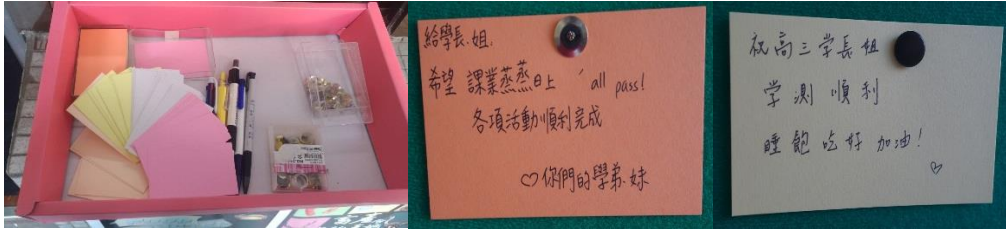 給學長.姐.
希望 課業蒸蒸日上 all pass!
各項活動順利完成
♡你們的學弟.妹
祝高三学長姐
学測順利
睡飽吃好加油!
♡